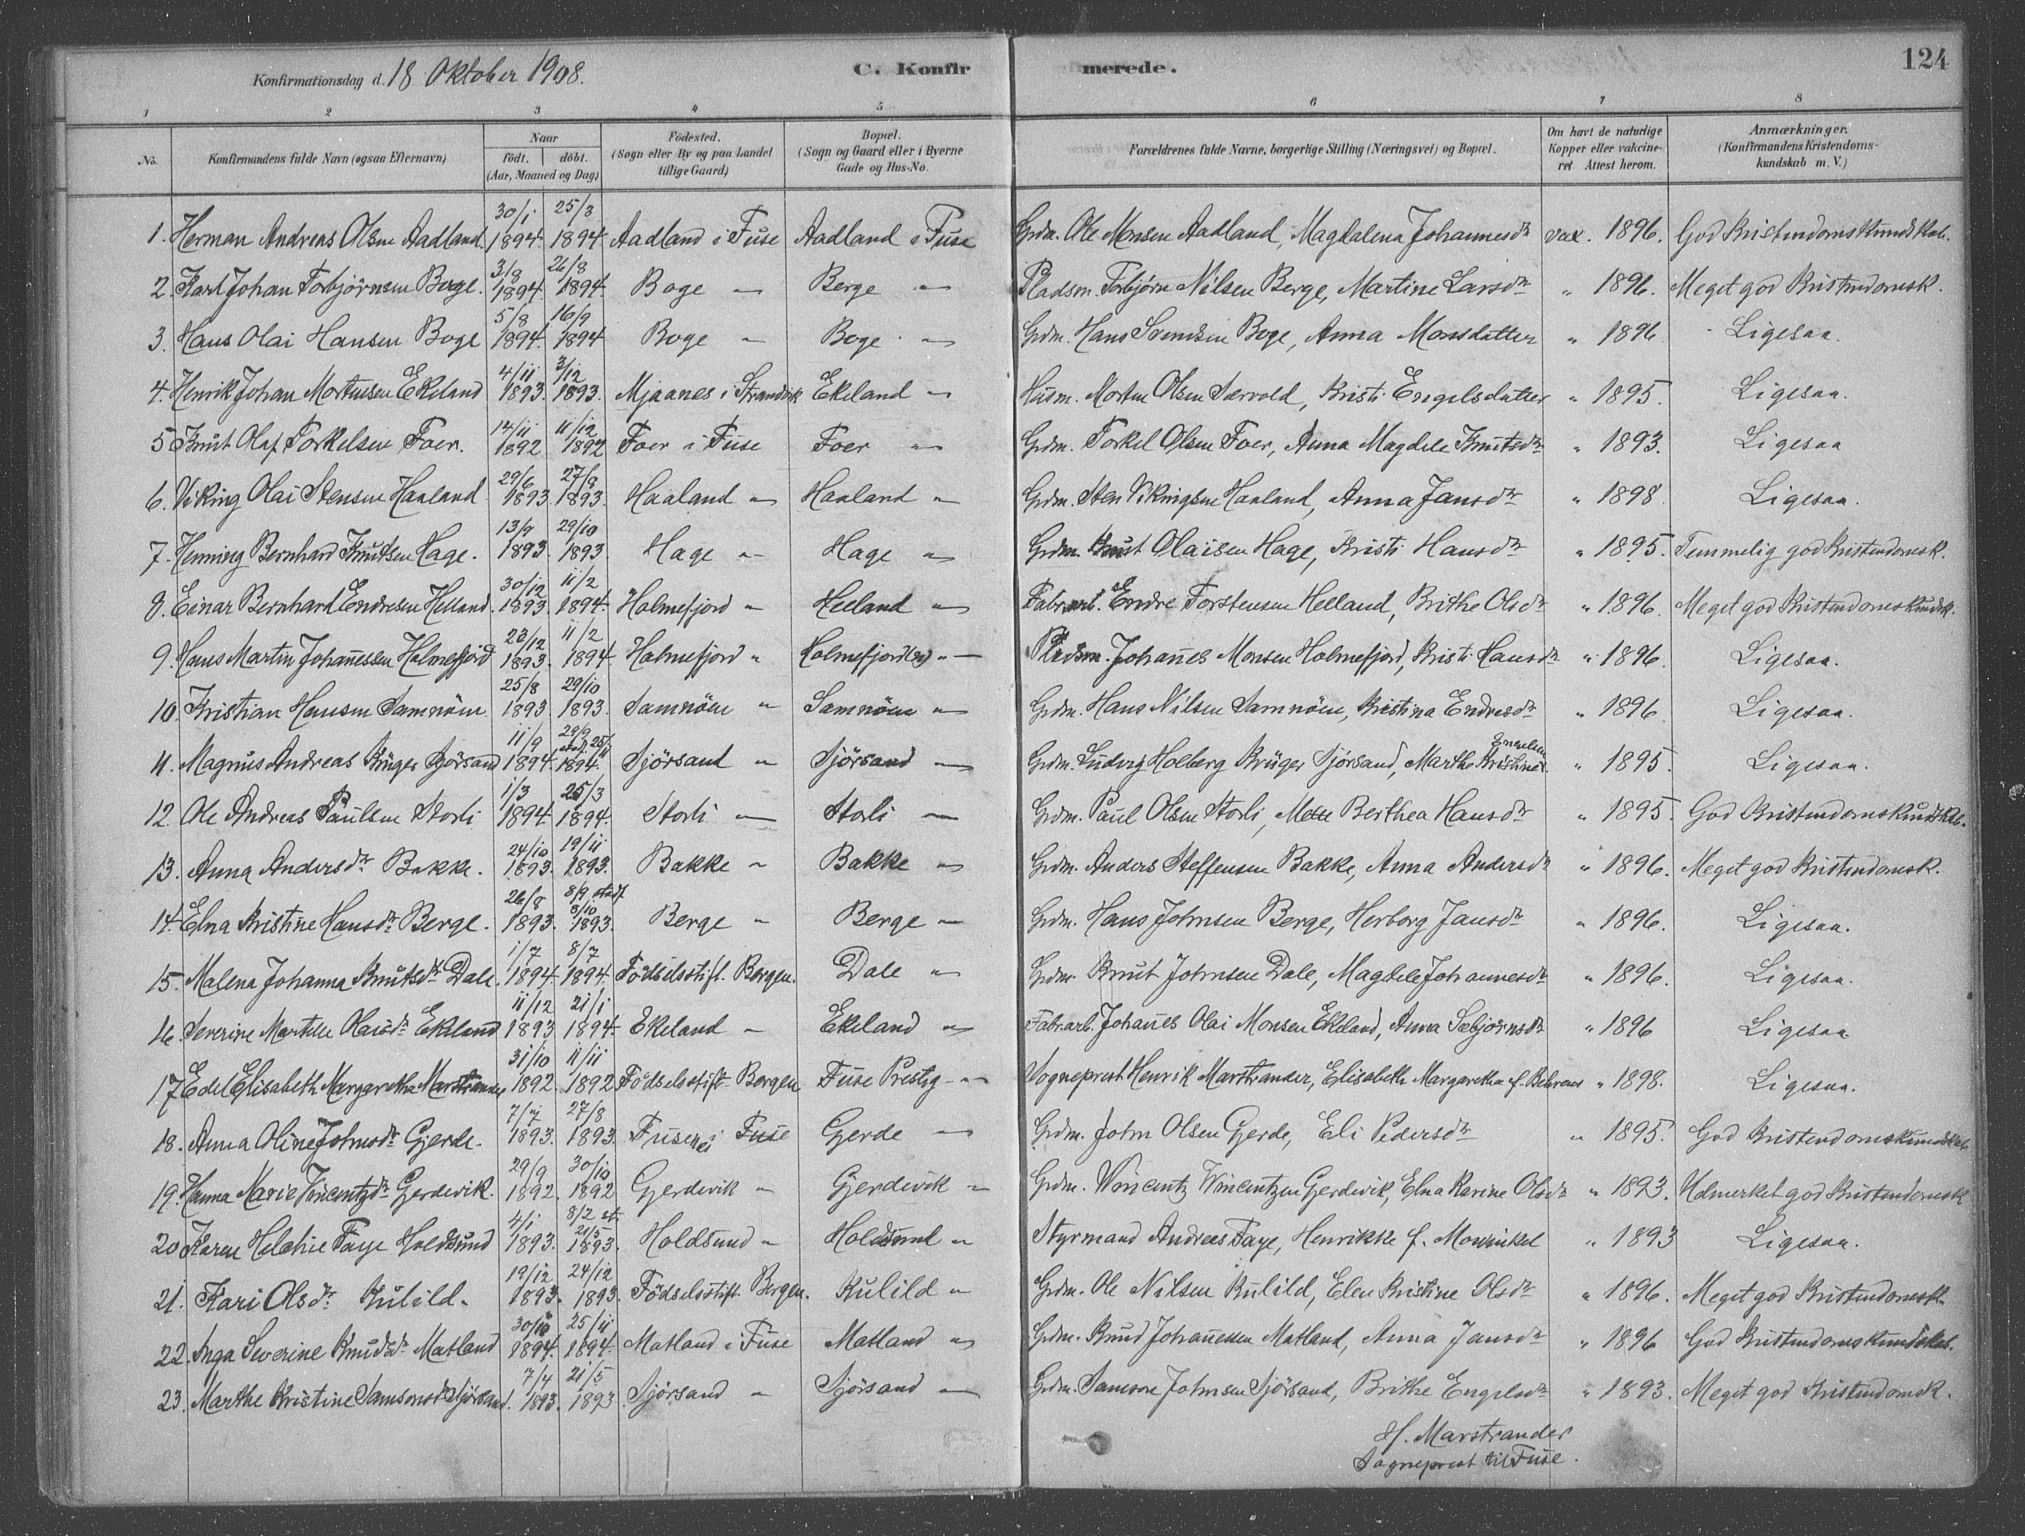 Konfirmationsdag d. 18 Oktober 1908. C. Konfirmerede. 124
1 2 3 4 5 6 7 8
No. Konfirmandens fulde Navn (ogsaa Efternavn) Naar født. døbt. (Aar, Maaned og Dag) Fødested. (Sogn eller By og paa Landet tillige Gaard) Bopæl. (Sogn og Gaard eller i Byerne Gade og Hus-No. Forældrenes fulde Navne, borgerlige Stilling (Næringsvei) og Bopæl. Om havt de naturlige Kopper eller vakcineret Attest herom. Anmærkninger. (Konfirmandens Kristendomskundskab m. V.)
1. Herman Andreas Olsen Aadland 30/1 1894. 25/3 1894. Aadland i Fuse Aadland i Fuse Grdm. Ole Monsen Aadland, Magdalena Johannesdr vax. 1896. God Kristendomskundskab.
2. Karl Johan Torbjørnsen Berge. 3/8 1894. 26/8 1894. Boge " Berge " Pladsm. Torbjørn Nilsen Berge, Martine Larsdr " 1896. Meget god Kristendomsk.
3. Hans Olai Hansen Boge 5/8 1894. 16/9 1894 Boge " Boge " Grdm. Hans Svendsen Boge, Anna Monsdatter " 1896 Ligesaa.
4. Henrik Johan Mortensen Ekeland 4/11 1893. 3/12 1893. Mjaanes i Strandvik Ekeland " Husm. Morten Olsen Sævold, Kristi Engelsdatter " 1895. Ligesaa.
5 Knut Olaf Torkelsen Foer. 14/11 1892 11/12 1892 Foer i Fuse Foer " Grdm. Torkel Olsen Foer, Anna Magdele Knutsdr " 1893. Ligesaa
6. Viking Olai Stensen Haaland 29/6 1893 27/8 1893. Haaland " Haaland " Grdm. Sten Vikingsen Haaland, Anna Jansdr " 1898 Ligesaa.
7. Henning Bernhard Knutsen Hage. 13/9 1893. 29/10 1893. Hage " Hage " Grdm. Knut Olaisen Hage, Kristi Hansdr " 1895. Temmelig god Kristendomsk.
8. Einar Bernhard Endresen Helland 30/12 1893. 11/2 1894. Holmefjord " Helland " Fabr.arb. Endre Torstensen Helland, Brithe Olsdr " 1896. Meget god Kristendomskundsk.
9. Hans Martin Johannessen Holmefjord 1893. 11/2 1894. Holmefjord " Holmefjord " Pladsm. Johannes Monsen Holmefjord, Kristi Hansdr " 1896. Ligesaa.
10. Kristian Hansen Samnöen 25/8 1893 29/10 1893. Samnöen " Samnöen " Grdm. Hans Nilsen Samnöen, Kristina Endresdr " 1896. Ligesaa.
11. Magnus Andreas Krüger Sjørsand 11/9 1894. 29/9 1894. Sjørsand " Sjørsand " Grdm. Ludvig Holberg Krüger Sjørsand, Marthe Kristine " 1895. Ligesaa.
12. Ole Andreas Paulsen Storli 1/3 1894. 25/3 1894. Storli " Storli " Grdm. Paul Olsen Storli, Mette Berthea Hansdr " 1895. God Kristendomskundskab.
13. Anna Andersdr Bakke. 24/10 1893. 19/11 1893. Bakke " Bakke " Grdm. Anders Steffensen Bakke, Anna Andersdr " 1896. Meget god Kristendomsk.
14. Elna Kristine Hansdr Berge. 26/8 1893. 8/9 stadf. 8/10 1893. Berge " Berge " Grdm. Hans Johnsen Berge, Herborg Jansdr " 1896. Ligesaa.
15. Malena Johanna Knutsdr Dale. 1/7 1894. 8/7 1894. Födselsstift. Bergen. Dale " Grdm. Knut Johnsen Dale, Magdele Johannesdr " 1896. Ligesaa.
16. Severine Martille Olaisdr Ekeland 11/12 1893 21/1 1894. Ekeland " Ekeland " Fabr.arb. Johannes Olai Monsen Ekeland, Anna Sæbjørnsdr " 1896 Ligesaa
17 Edel Elisabeth Margaretha Marstrander 31/10 1892. 11/11 1892 Födselsstift. Bergen Fuse Prestg. " Sogneprest Henrik Marstrander, Elisabeth Margaretha f. Behrens " 1898. Ligesaa.
18. Anna Oline Johnsdr Gjerde. 7/7 1893. 27/8 1893. Fusene i Fuse Gjerde " Grdm. John Olsen Gjerde, Eli Pedersdr " 1895. God Kristendomskundskab.
19. Hanna Marie Vincentzdr Gjerdevik. 29/9 1892. 30/10 1892 Gjerdevik " Gjerdevik " Grdm. Vincentz Vincentzen Gjerdevik, Elna Karine Olsdr " 1893. Udmerket god Kristendomsk
20 Karen Helene Faye Holdsund 4/1 1893. 8/2 st. 21/5 1893. Holdsund " Holdsund " Styrmand Andreas Faye, Henrikke f. Mowinkel " 1893 Ligesaa.
21. Kari Olsdr Kulild. 19/12 1893. 24/12 1893. Födselsstift. Bergen. Kulild " Grdm. Ole Nilsen Kulild, Elen Kristine Olsdr " 1896. Meget god Kristendomsk.
22. Inga Severine Knudsdr Matland 30/10 1894. 25/11 1894. Matland i Fuse Matland " Grdm. Knud Johannessen Matland, Anna Jansdr " 1896 God Kristendomskundskab.
23. Marthe Kristine Samsonsdr Sjørsand. 7/4 1893. 21/5 1893 Sjørsand " Sjørsand " Grdm. Samson Johnsen Sjørsand, Brithe Engelsdr " 1893. Meget god Kristendomsk.
H. Marstrander
Sogneprest til Fuse.